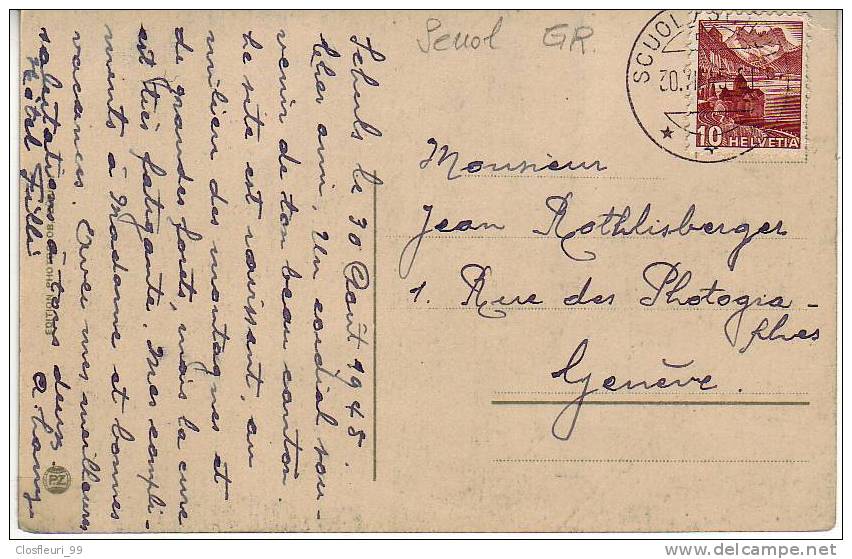 Scuol GR.
SCUOL
30.
10
HELVETIA
Schuls le 30 Août 1945.
Cher ami, Un cordial sou-
venir de ton beau canton
le site est ravissant, au
milieu des montagnes et
de grandes forêts, mais la cure
est très fatigante. Mes compli-
ments à Madame et bonnes
vacances. Avec mes meilleures
salutations à tous deux.
Hôtel Filli
Monsieur
Jean Rothlisberger
1. Rue des Photogra-
phes
Genève.
EDITION PHO
PZ
Closfleuri_99
www.delcampe.net